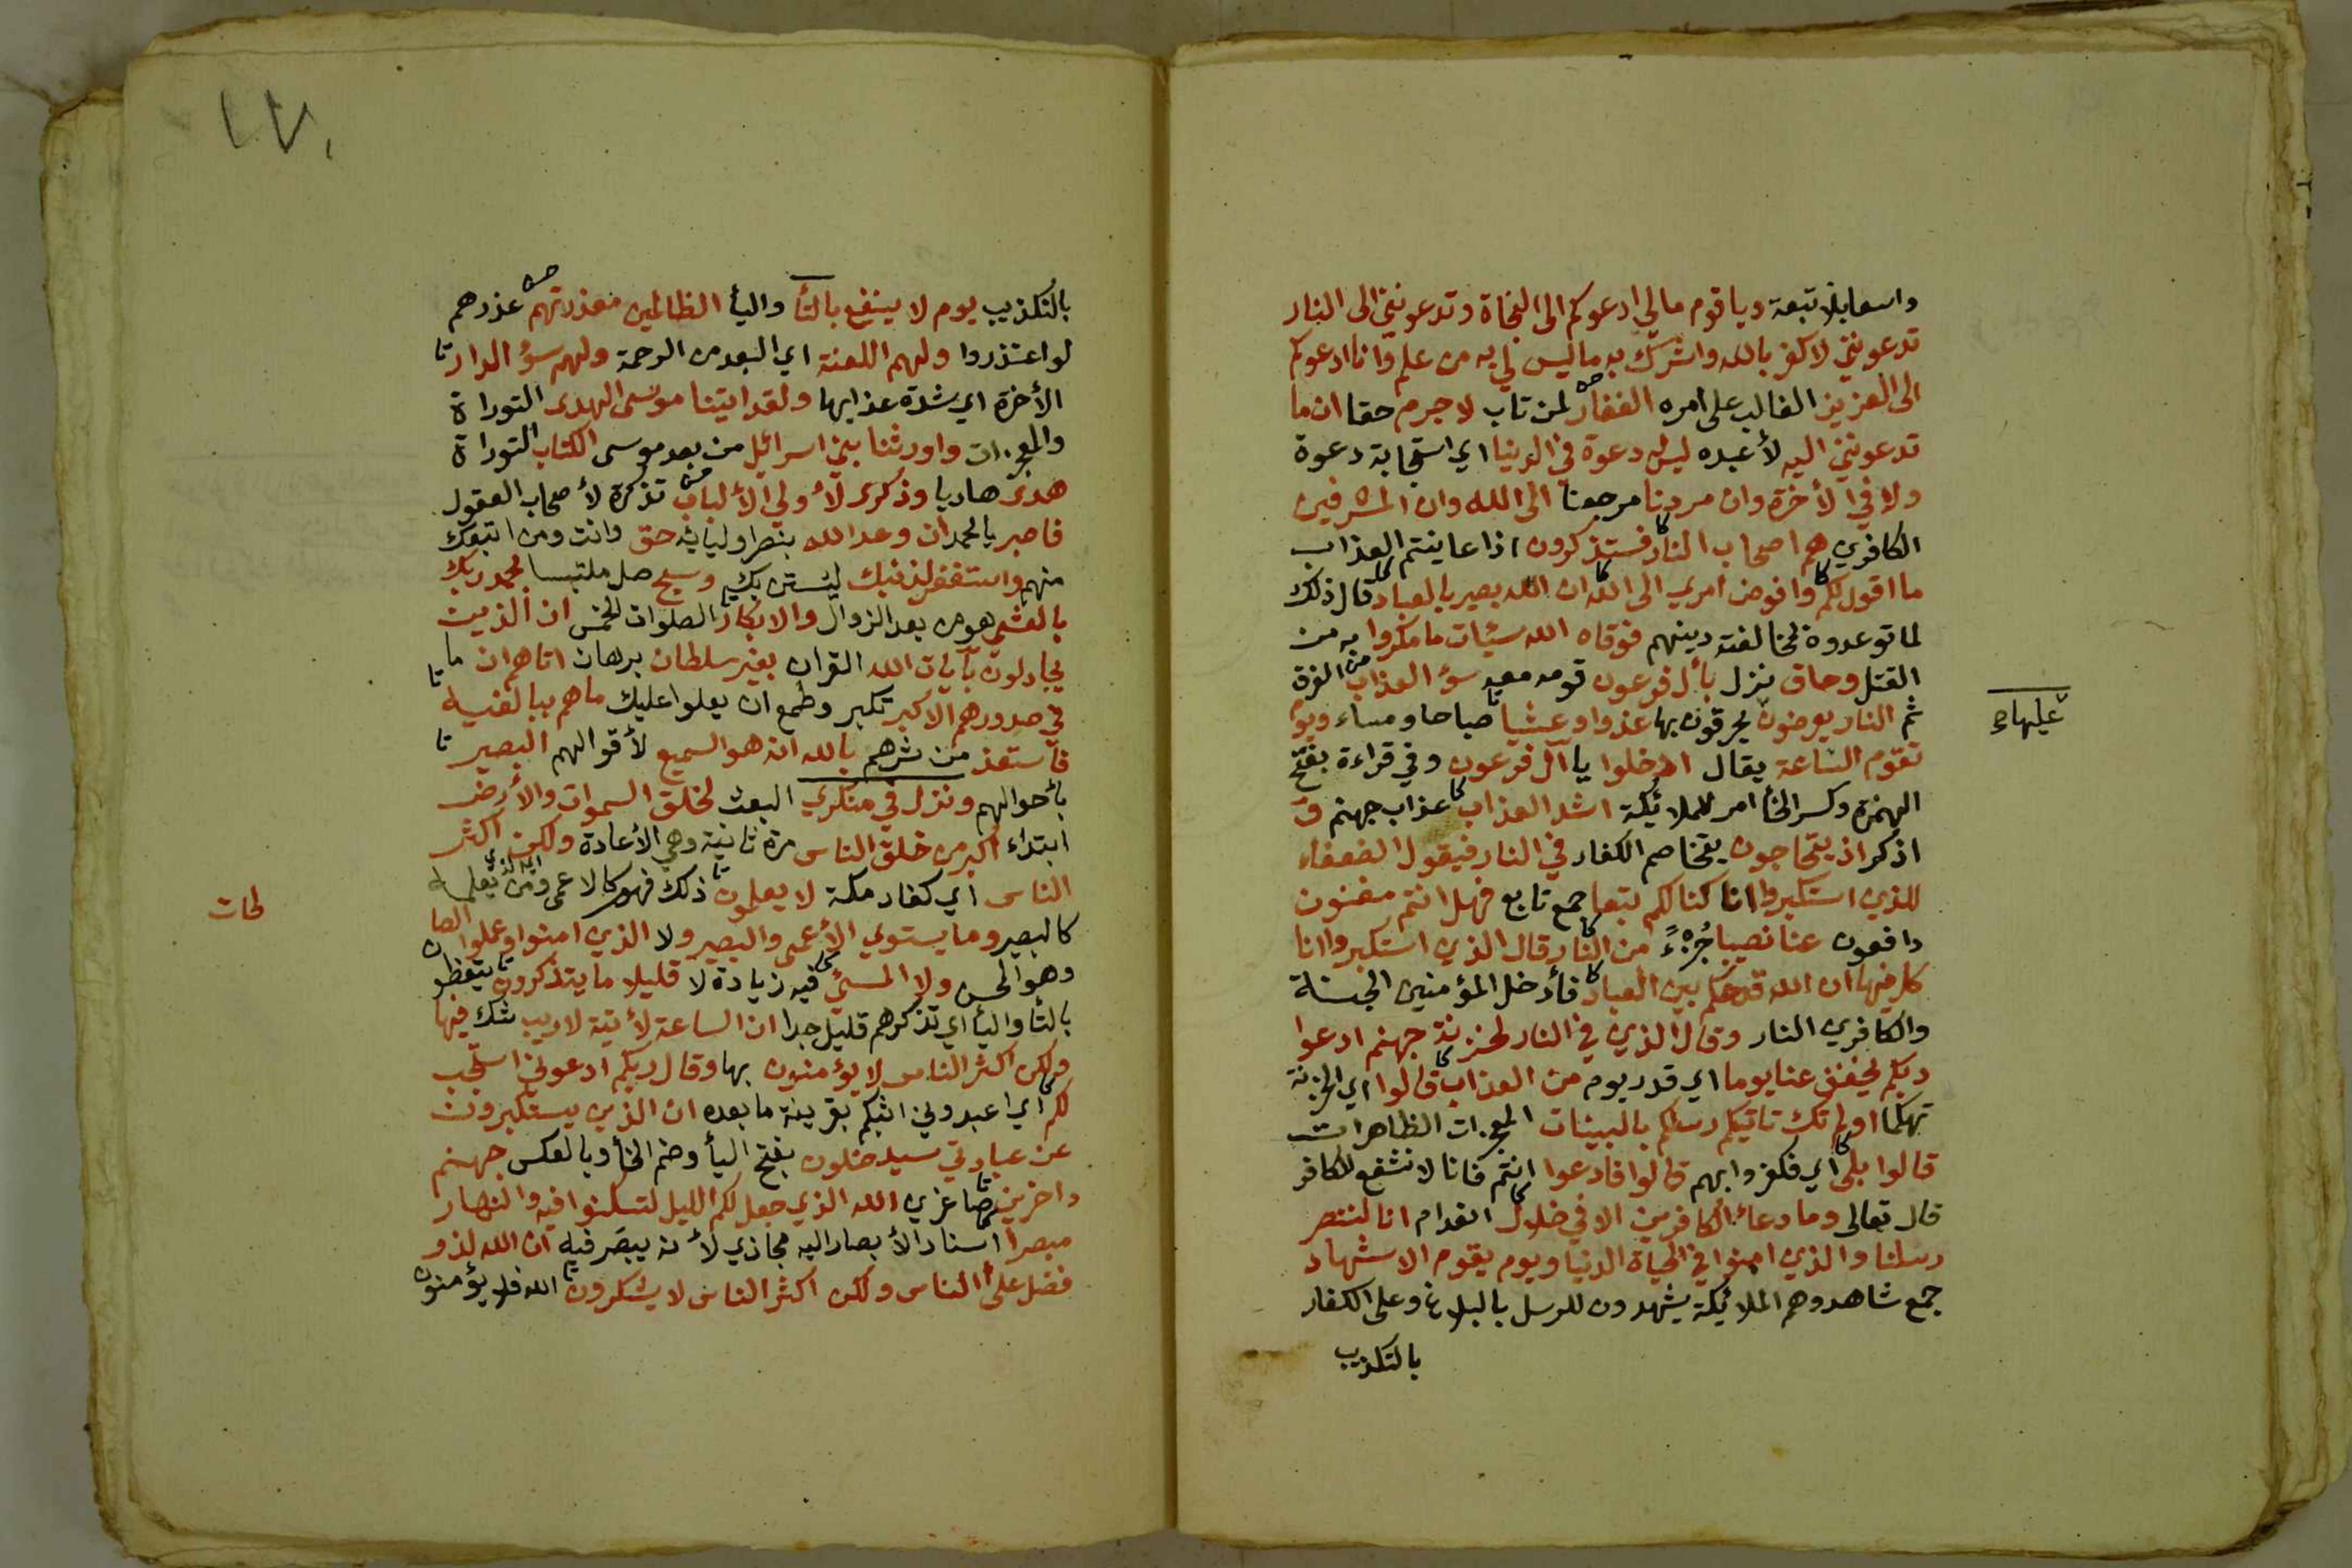 واسعا بلا تبعة ويا قوم مالي ادعوكم الى النجاة وتدعونني الى النار
تدعونني لاكفر بالله واشرك به ما ليس لي به من علم وانا ادعوكم
الى العزيز الغالب على امره الغفار لمن تاب لا جرم حقا ان ما
تدعونني اليه لأعبده ليس له دعوة في الدنيا اي استجابة دعوة
ولا في الأخرة وان مردنا مرجعنا الى الله وان المسرفين
الكافرين هم اصحاب النار فستذكرون اذا عاينتم العذاب
ما اقول لكم وافوض امري الى الله ان الله بصير بالعباد قال ذلك
لما توعدوه لمخالفته دينهم فوقاه الله سيئات ما مكروا به من
القتل وحاق نزل بأل فرعون قومه معه سؤ العذاب الغرق
ثم النار يعرضون يحرقون بها غدوا وعشيا صباحا ومساء ويوم
عليها صح
تقوم الساعة يقال ادخلوا يا آل فرعون وفي قراءة بفتح
الهمزة وكسر الخأ امر للملائكة اشد العذاب عذاب جهنم و
اذكر اذ يتحاجون يتخاصم الكفار في النار فيقول الضعفاء
للذين استكبروا انا كنا لكم تبعا جمع تابع فهل انتم مغنون
دافعون عنا نصيبا جُزءً من النار قال الذين استكبروا انا
كل فيها ان الله قد حكم بين العباد فأدخل المؤمنين الجنة
والكافرين النار وقال الذين في النار لخزنة جهنم ادعوا
ربكم يخفف عنا يوما اي قدر يوم من العذاب قالوا اي الخزنة
تهكما اولم تك تاتيكم رسلكم بالبينات المعجزات الظاهرات
قالوا بلى اي فكفروا بهم قالوا فادعوا انتم فانا لا نشفع للكافر
قال تعالى وما دعاء الكافرين الا في ضلال انعدام انا لننصر
رسلنا والذين امنوا في الحياة الدنيا ويوم يقوم الاشهاد
جمع شاهد وهم الملائكة يشهدون للرسل بالبلاغ وعلى الكفار
بالتكذيب
بالتكذيب يوم لا ينفع بالتأ واليأ الظالمين معذرتهم عذرهم
لو اعتذروا ولهم اللعنة اي البعد من الرحمة ولهم سؤ الدار
الأخرة اي شدة عذابها ولقد اتينا موسى الهدى التوراة
والمعجزات واورثنا بني اسرائيل من بعد موسى الكتاب التوراة
هدى هاديا وذكرى لأولي الألباب تذكرة لأصحاب العقول
فاصبر يا محمد ان وعد الله بنصر اوليايه حق وانت ومن اتبعك
منهم واستغفر لذنبك ليستن بك وسبح صل ملتبسا بحمد ربك
بالعشي هو من بعد الزوال والابكار الصلوات الخمس ان الذين
يجادلون بآيات الله القران بغير سلطان برهان اتاهم ان ما
في صدورهم الا كبر تكبر وطمع ان يعلوا عليك ما هم ببالغيه
فاستعذ من شرهم بالله انه هو السميع لأقوالهم البصير
بأحوالهم ونزل في منكري البعث لخلق السموات والأرض
ابتداء اكبر من خلق الناس مرة ثانية وهي الأعادة ولكن اكثر
الناس اي كفار مكة لا يعلمون ذلك فهو كالاعمى ومن يعلمه
كالبصير وما يستوي الأعمى والبصير ولا الذين امنوا وعملوا الصا
لحات
وهو المحسن ولا المسيئ فيه زيادة لا قليلا ما يتذكرون يتعظون
بالتأ واليأ اي تذكرهم قليل جدا ان الساعة لأتية لا ريب شك فيها
ولكن اكثر الناس لا يؤمنون بها وقال ربكم ادعوني استجب
لكم اي اعبدوني اثبكم بقرينة ما بعده ان الذين يستكبرون
عن عبادتي سيدخلون بفتح اليأ وضم الخأ وبالعكس جهنم
داخرين صاغرين الله الذي جعل لكم الليل لتسكنوا فيه والنهار
مبصرا اسناد الأبصار اليه مجازي لأنه يبصر فيه ان الله لذو
فضل على الناس ولكن اكثر الناس لا يشكرون الله فلا يؤمنون